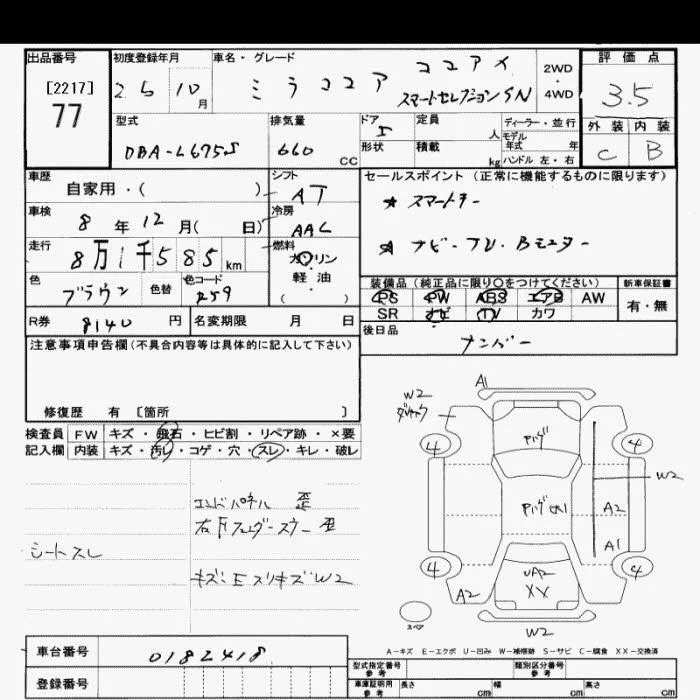 出品番号
[2217]
77
初度登録年月
25 10月
車名・グレード
ミラココア ココアX
スマートセレクションSN
2WD
・
4WD
評価点
3.5
外装 内装
C B
型式
DBA-L675S
排気量
660 CC
ドア
5
形状
定員
人
積載
kg
ディーラー・並行
モデル
年式 年
ハンドル 左・右
車歴
自家用・( )
シフト
AT
車検
8年12月( 日)
冷房
AAC
走行
8万1千585km
燃料
ガソリン
軽油
( )
色
ブラウン
色替
色コード
R59
R券
8140円
名変期限 月 日
セールスポイント(正常に機能するものに限ります)
★ スマートキー
★ ナビ・TV・Bモニター
装備品(純正品に限り〇をつけてください)
PS PW ABS エアB AW
SR ナビ TV カワ
新車保証書
有・無
後日品
ナンバー
注意事項申告欄(不具合内容等は具体的に記入して下さい)
修復歴 有 [箇所 ]
検査員
記入欄
FW キズ・飛石・ヒビ割・リペア跡・×要
内装 キズ・汚レ・コゲ・穴・スレ・キレ・破レ
シートスレ
エンドパネル 歪
キズ、E スリキズW2
A1
W2
4
4
W2
A2
A1
4
4
UA2
XX
A2
W2
スペア
A-キズ E-エクボ U-凹み W-補修跡 S-サビ C-腐食 XX-交換済
車台番号
0182418
登録番号
型式指定番号
参考
類別区分番号
参考
車庫証明用
参考
長さ cm
幅 cm
高さ cm